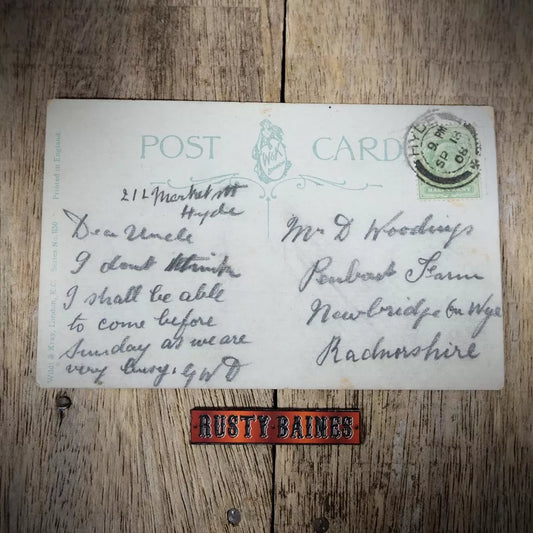 POST CARD
HYDE
9 PM
SP 18
08
HALFPENNY
212 Market St
Hyde
Dear Uncle
I dont think
I shall be able
to come before
Sunday as we are
very busy. GWD
Mr D Woodings
Farm
Newbridge On Wye
Radnorshire
Wildt & Kray, London, E.C. Series No.
Printed in England
RUSTY BAINES